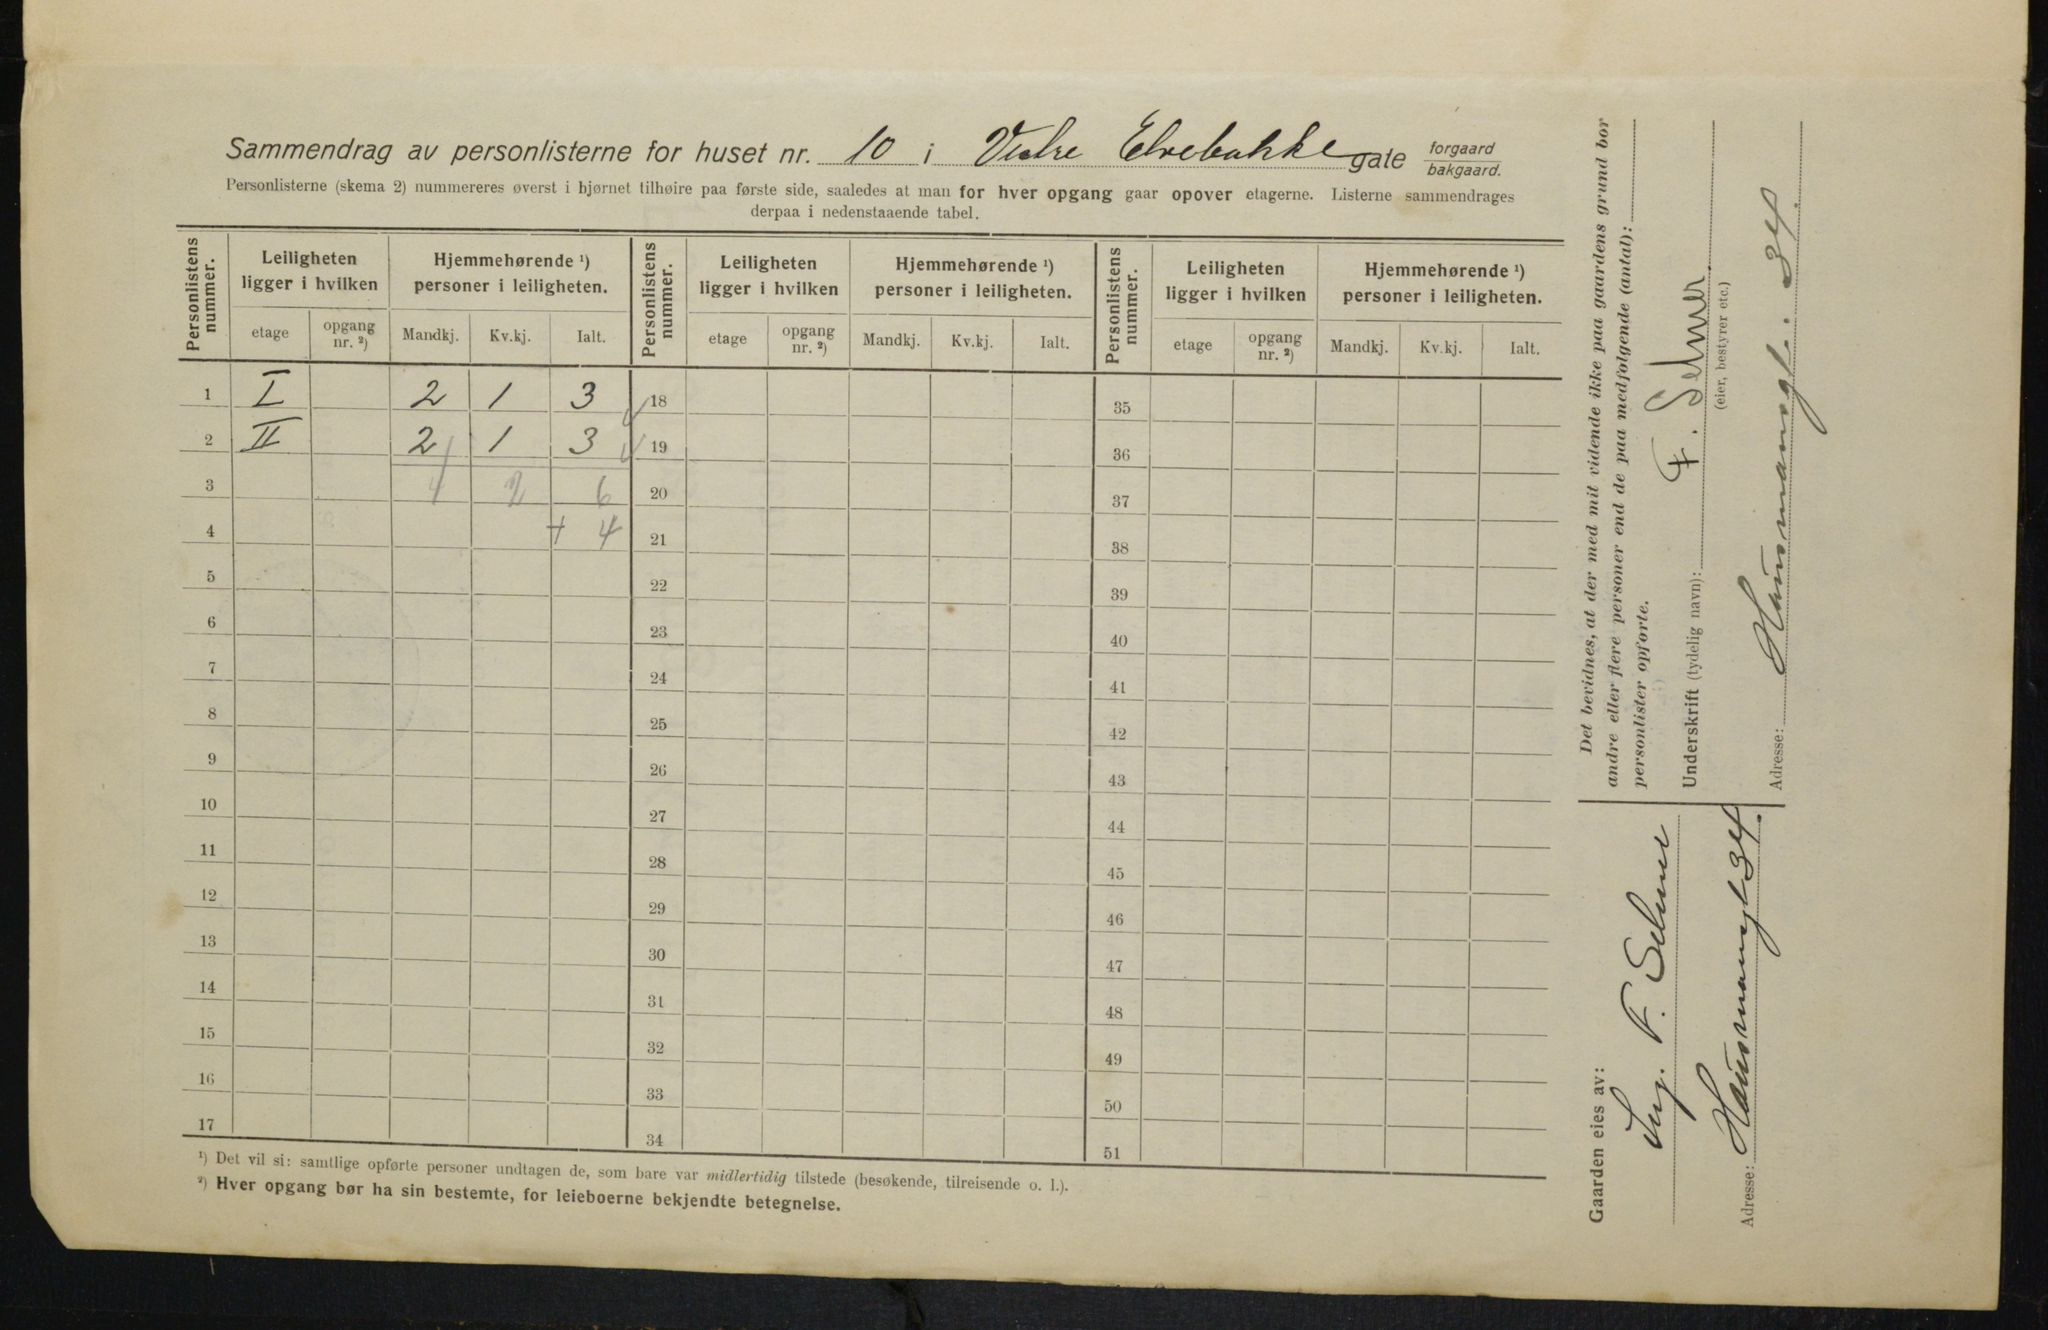 Sammendrag av personlisterne for huset nr. 10 i Vestre Elvebakke gate forgaard bakgaard.
Personlisterne (skema 2) nummereres øverst i hjørnet tilhøire paa første side, saaledes at man for hver opgang gaar opover etagerne. Listerne sammendrages
derpaa i nedenstaaende tabel.
Personlistens nummer. Leiligheten ligger i hvilken Hjemmehørende ¹) personer i leiligheten. Personlistens nummer. Leiligheten ligger i hvilken Hjemmehørende ¹) personer i leiligheten. Personlistens nummer. Leiligheten ligger i hvilken Hjemmehørende ¹) personer i leiligheten.
etage opgang nr. ²) Mandkj. Kv.kj. Ialt. etage opgang nr. ²) Mandkj. Kv.kj. Ialt. etage opgang nr. ²) Mandkj. Kv.kj. Ialt.
1 I 2 1 3 18 35
2 II 2 1 3 19 36
3 4 2 6 20 37
4 + 4 21 38
5 22 39
6 23 40
7 24 41
8 25 42
9 26 43
10 27 44
11 28 45
12 29 46
13 30 47
14 31 48
15 32 49
16 33 50
17 34 51
¹) Det vil si: samtlige opførte personer undtagen de, som bare var midlertidig tilstede (besøkende, tilreisende o. l.).
²) Hver opgang bør ha sin bestemte, for leieboerne bekjendte betegnelse.
Det bevidnes, at der med mit vidende ikke paa gaardens grund bor
andre eller flere personer end de paa medfølgende (antal):
personlister opførte.
Underskrift (tydelig navn): F. Selmer.
(eier, bestyrer etc.)
Adresse: Hausmannsgt. 34.
Gaarden eies av:
F. Selmer
Adresse: Hausmannsgt 34.